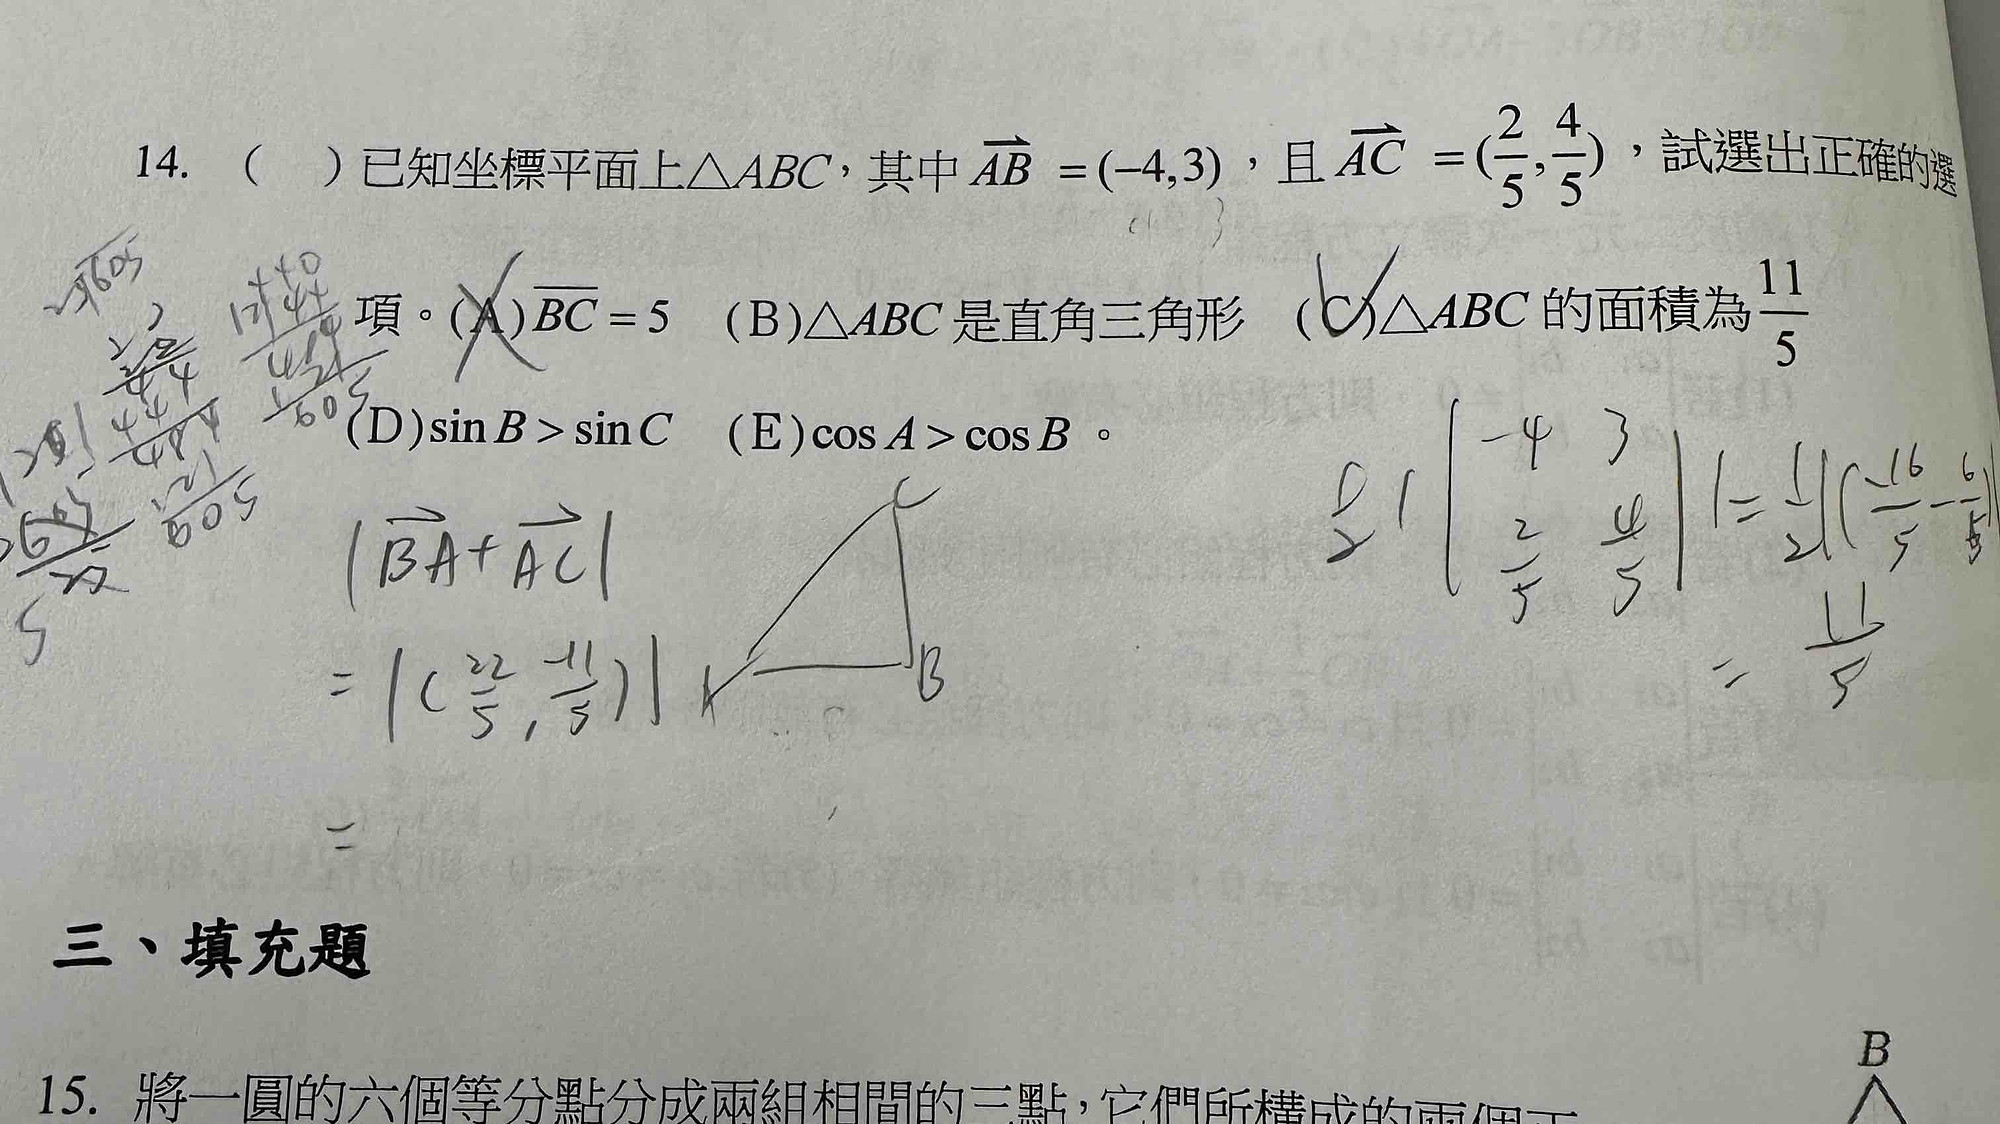 14. ( ) 已知坐標平面上△ABC，其中 \overrightarrow{AB} = (−4,3)，且 \overrightarrow{AC} = (\frac{2}{5},\frac{4}{5})，試選出正確的選
項。(A) \overline{BC} = 5 (B)△ABC 是直角三角形 (C)△ABC 的面積為 \frac{11}{5}
(D)sin B > sin C (E)cos A > cos B。
|\overrightarrow{BA}+\overrightarrow{AC}|
= |(\frac{22}{5}, \frac{-11}{5})|
=
C
A
B
\frac{1}{2} | | -4 3 \frac{2}{5} \frac{4}{5} | | = \frac{1}{2} |(\frac{-16}{5} - \frac{6}{5})|
= \frac{11}{5}
三、填充題
15. 將一圓的六個等分點分成兩組相間的三點，它們所構成的兩個正
B